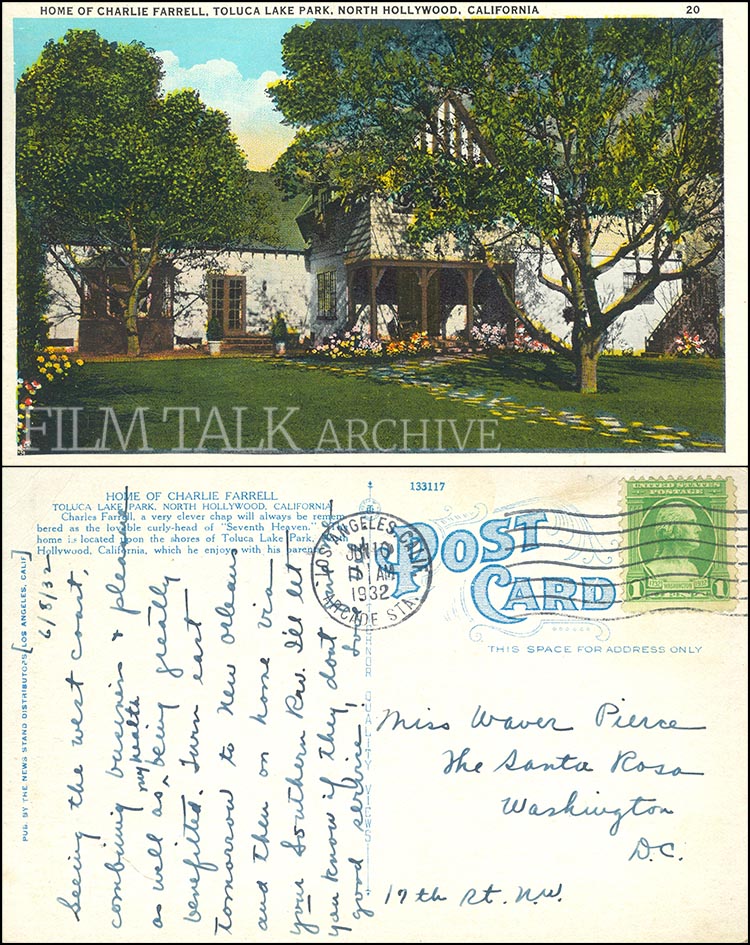 HOME OF CHARLIE FARRELL, TOLUCA LAKE PARK, NORTH HOLLYWOOD, CALIFORNIA 20
FILM TALK ARCHIVE
HOME OF CHARLIE FARRELL
TOLUCA LAKE PARK, NORTH HOLLYWOOD, CALIFORNIA
Charles Farrell, a very clever chap will always be remem
bered as the lovable curly-head of "Seventh Heaven."
home is located upon the shores of Toluca Lake Park,
Hollywood, California, which he enjoys with his parents
133117
POST
CARD
THIS SPACE FOR ADDRESS ONLY
LOS ANGELES, CALIF.
JUN 10
AM
1932
ARCADE STA.
UNITED STATES
POSTAGE
1 1
PUB. BY THE NEWS STAND DISTRIBUTORS, LOS ANGELES, CALIF.
QUALITY VIEWS
6/8/32
Seeing the west coast,
combining business & pleasure
as well as my health being greatly
benefitted. Turn east
tomorrow to New Orleans
and then on home via
your Southern Rw. I'll let
you know if they dont
good service.
Miss Waver Pierce
The Santa Rosa
Washington
D.C.
17th St. N.W.